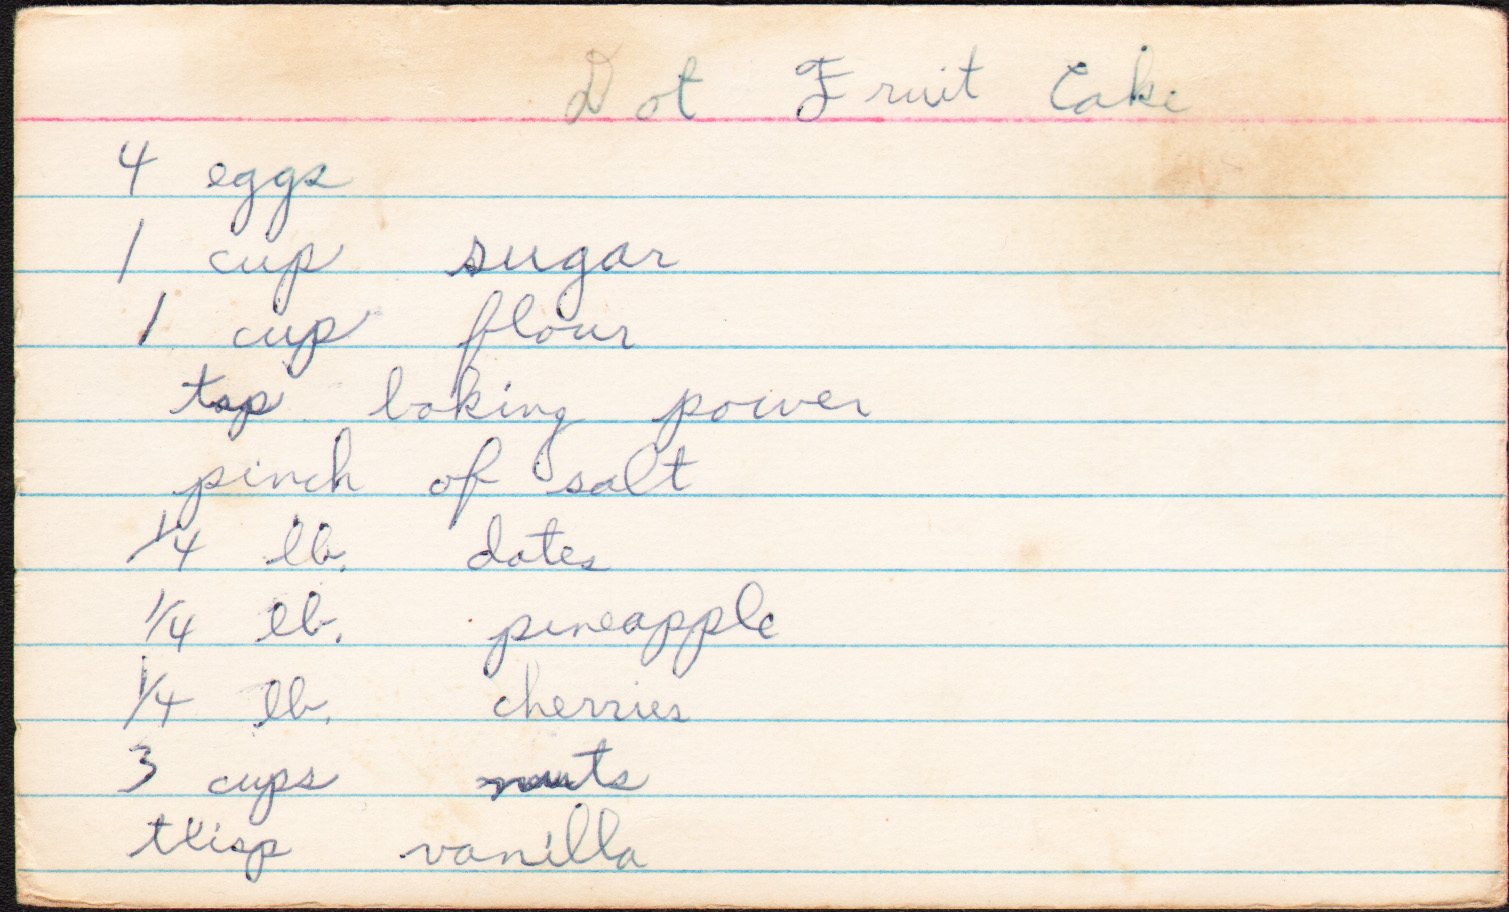 Dot Fruit Cake
4 eggs
1 cup sugar
1 cup flour
tsp baking power
pinch of salt
1/4 lb. dates
1/4 lb. pineapple
1/4 lb. cherries
3 cups nuts
vanilla